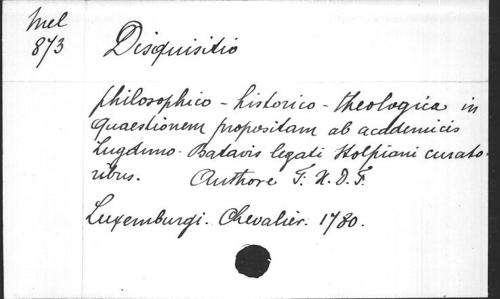 Mel
873
Disquisitio
philosophico - historico - theologica in
quaestionem propositam ab academicis
Lugduno - Batavis legati Stolpiani curato-
ribus. Authore F. X. D. F.
Luxemburgi. Chevalier. 1780.